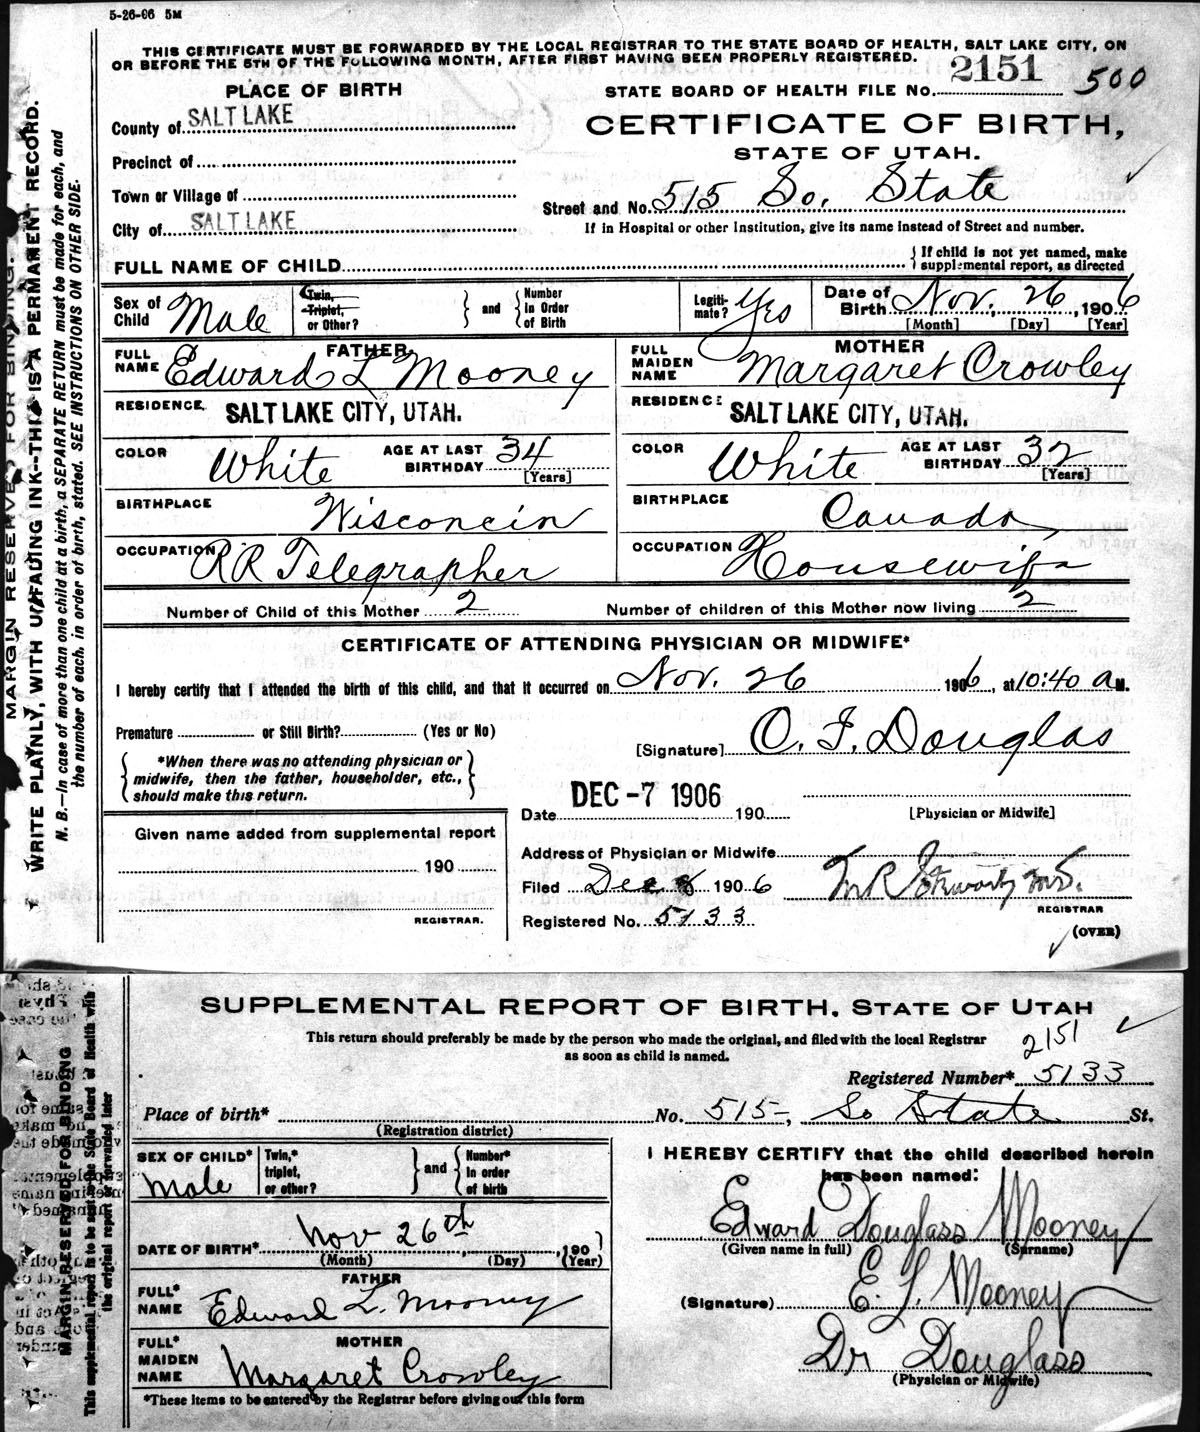 5-26-06 5M
THIS CERTIFICATE MUST BE FORWARDED BY THE LOCAL REGISTRAR TO THE STATE BOARD OF HEALTH, SALT LAKE CITY, ON
OR BEFORE THE 5TH OF THE FOLLOWING MONTH, AFTER FIRST HAVING BEEN PROPERLY REGISTERED.
PLACE OF BIRTH
STATE BOARD OF HEALTH FILE No. 2151 500
County of SALT LAKE
CERTIFICATE OF BIRTH,
STATE OF UTAH.
Precinct of
Town or Village of
Street and No. 515 So. State
City of SALT LAKE
If in Hospital or other Institution, give its name instead of Street and number.
FULL NAME OF CHILD
If child is not yet named, make
supplemental report, as directed
Sex of Child Male
Twin, Triplet, or Other?
and
Number in Order of Birth
Legitimate? Yes
Date of Birth Nov. 26, 1906
[Month] [Day] [Year]
FATHER
FULL NAME Edward L Mooney
RESIDENCE SALT LAKE CITY, UTAH.
COLOR White
AGE AT LAST BIRTHDAY 34
[Years]
BIRTHPLACE Wisconcin
OCCUPATION RR Telegrapher
MOTHER
FULL MAIDEN NAME Margaret Crowley
RESIDENCE SALT LAKE CITY, UTAH.
COLOR White
AGE AT LAST BIRTHDAY 32
[Years]
BIRTHPLACE Canada
OCCUPATION Housewife
Number of Child of this Mother 2
Number of children of this Mother now living 2
CERTIFICATE OF ATTENDING PHYSICIAN OR MIDWIFE*
I hereby certify that I attended the birth of this child, and that it occurred on Nov. 26 1906, at 10:40 a M.
Premature or Still Birth? (Yes or No)
[Signature] O. F. Douglas
*When there was no attending physician or
midwife, then the father, householder, etc.,
should make this return.
Date DEC -7 1906 190
[Physician or Midwife]
Given name added from supplemental report
190
REGISTRAR.
Address of Physician or Midwife
Filed Dec 8 1906
M.D.
REGISTRAR
Registered No. 5133
(OVER)
MARGIN RESERVED FOR BINDING.
WRITE PLAINLY, WITH UNFADING INK--THIS IS A PERMANENT RECORD.
N. B.—In case of more than one child at a birth, a SEPARATE RETURN must be made for each, and
the number of each, in order of birth, stated. SEE INSTRUCTIONS ON OTHER SIDE.
SUPPLEMENTAL REPORT OF BIRTH, STATE OF UTAH
This return should preferably be made by the person who made the original, and filed with the local Registrar
as soon as child is named.
2151
Registered Number* 5133
Place of birth* No. 515- So State St.
(Registration district)
SEX OF CHILD* Male
Twin,* triplet, or other?
and
Number* in order of birth
DATE OF BIRTH* Nov 26th, 190
(Month) (Day) (Year)
FATHER
FULL* NAME Edward L. Mooney
MOTHER
FULL* MAIDEN NAME Margaret Crowley
*These items to be entered by the Registrar before giving out this form
I HEREBY CERTIFY that the child described herein
has been named:
Edward Douglass Mooney
(Given name in full) (Surname)
(Signature) E. L. Mooney
Dr Douglass
(Physician or Midwife)
MARGIN RESERVED FOR BINDING
This supplemental report is to be sent to the State Board of Health with
the original report or forwarded later